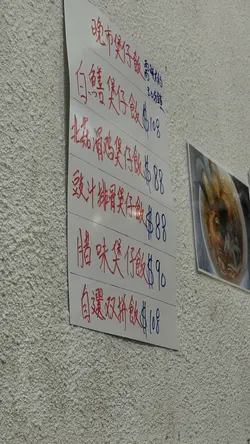 晚市煲仔飯
白鱔煲仔飯 $108
北菇滑鸡煲仔飯 $88
豉汁排骨煲仔飯 $88
腊味煲仔飯 $90
自選双拼飯 $108